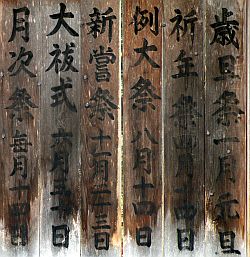 歳旦祭 一月元旦
祈年祭 四月十四日
例大祭 八月十四日
新嘗祭 十一月二十三日
大祓式 六月三十日
月次祭 毎月十四日